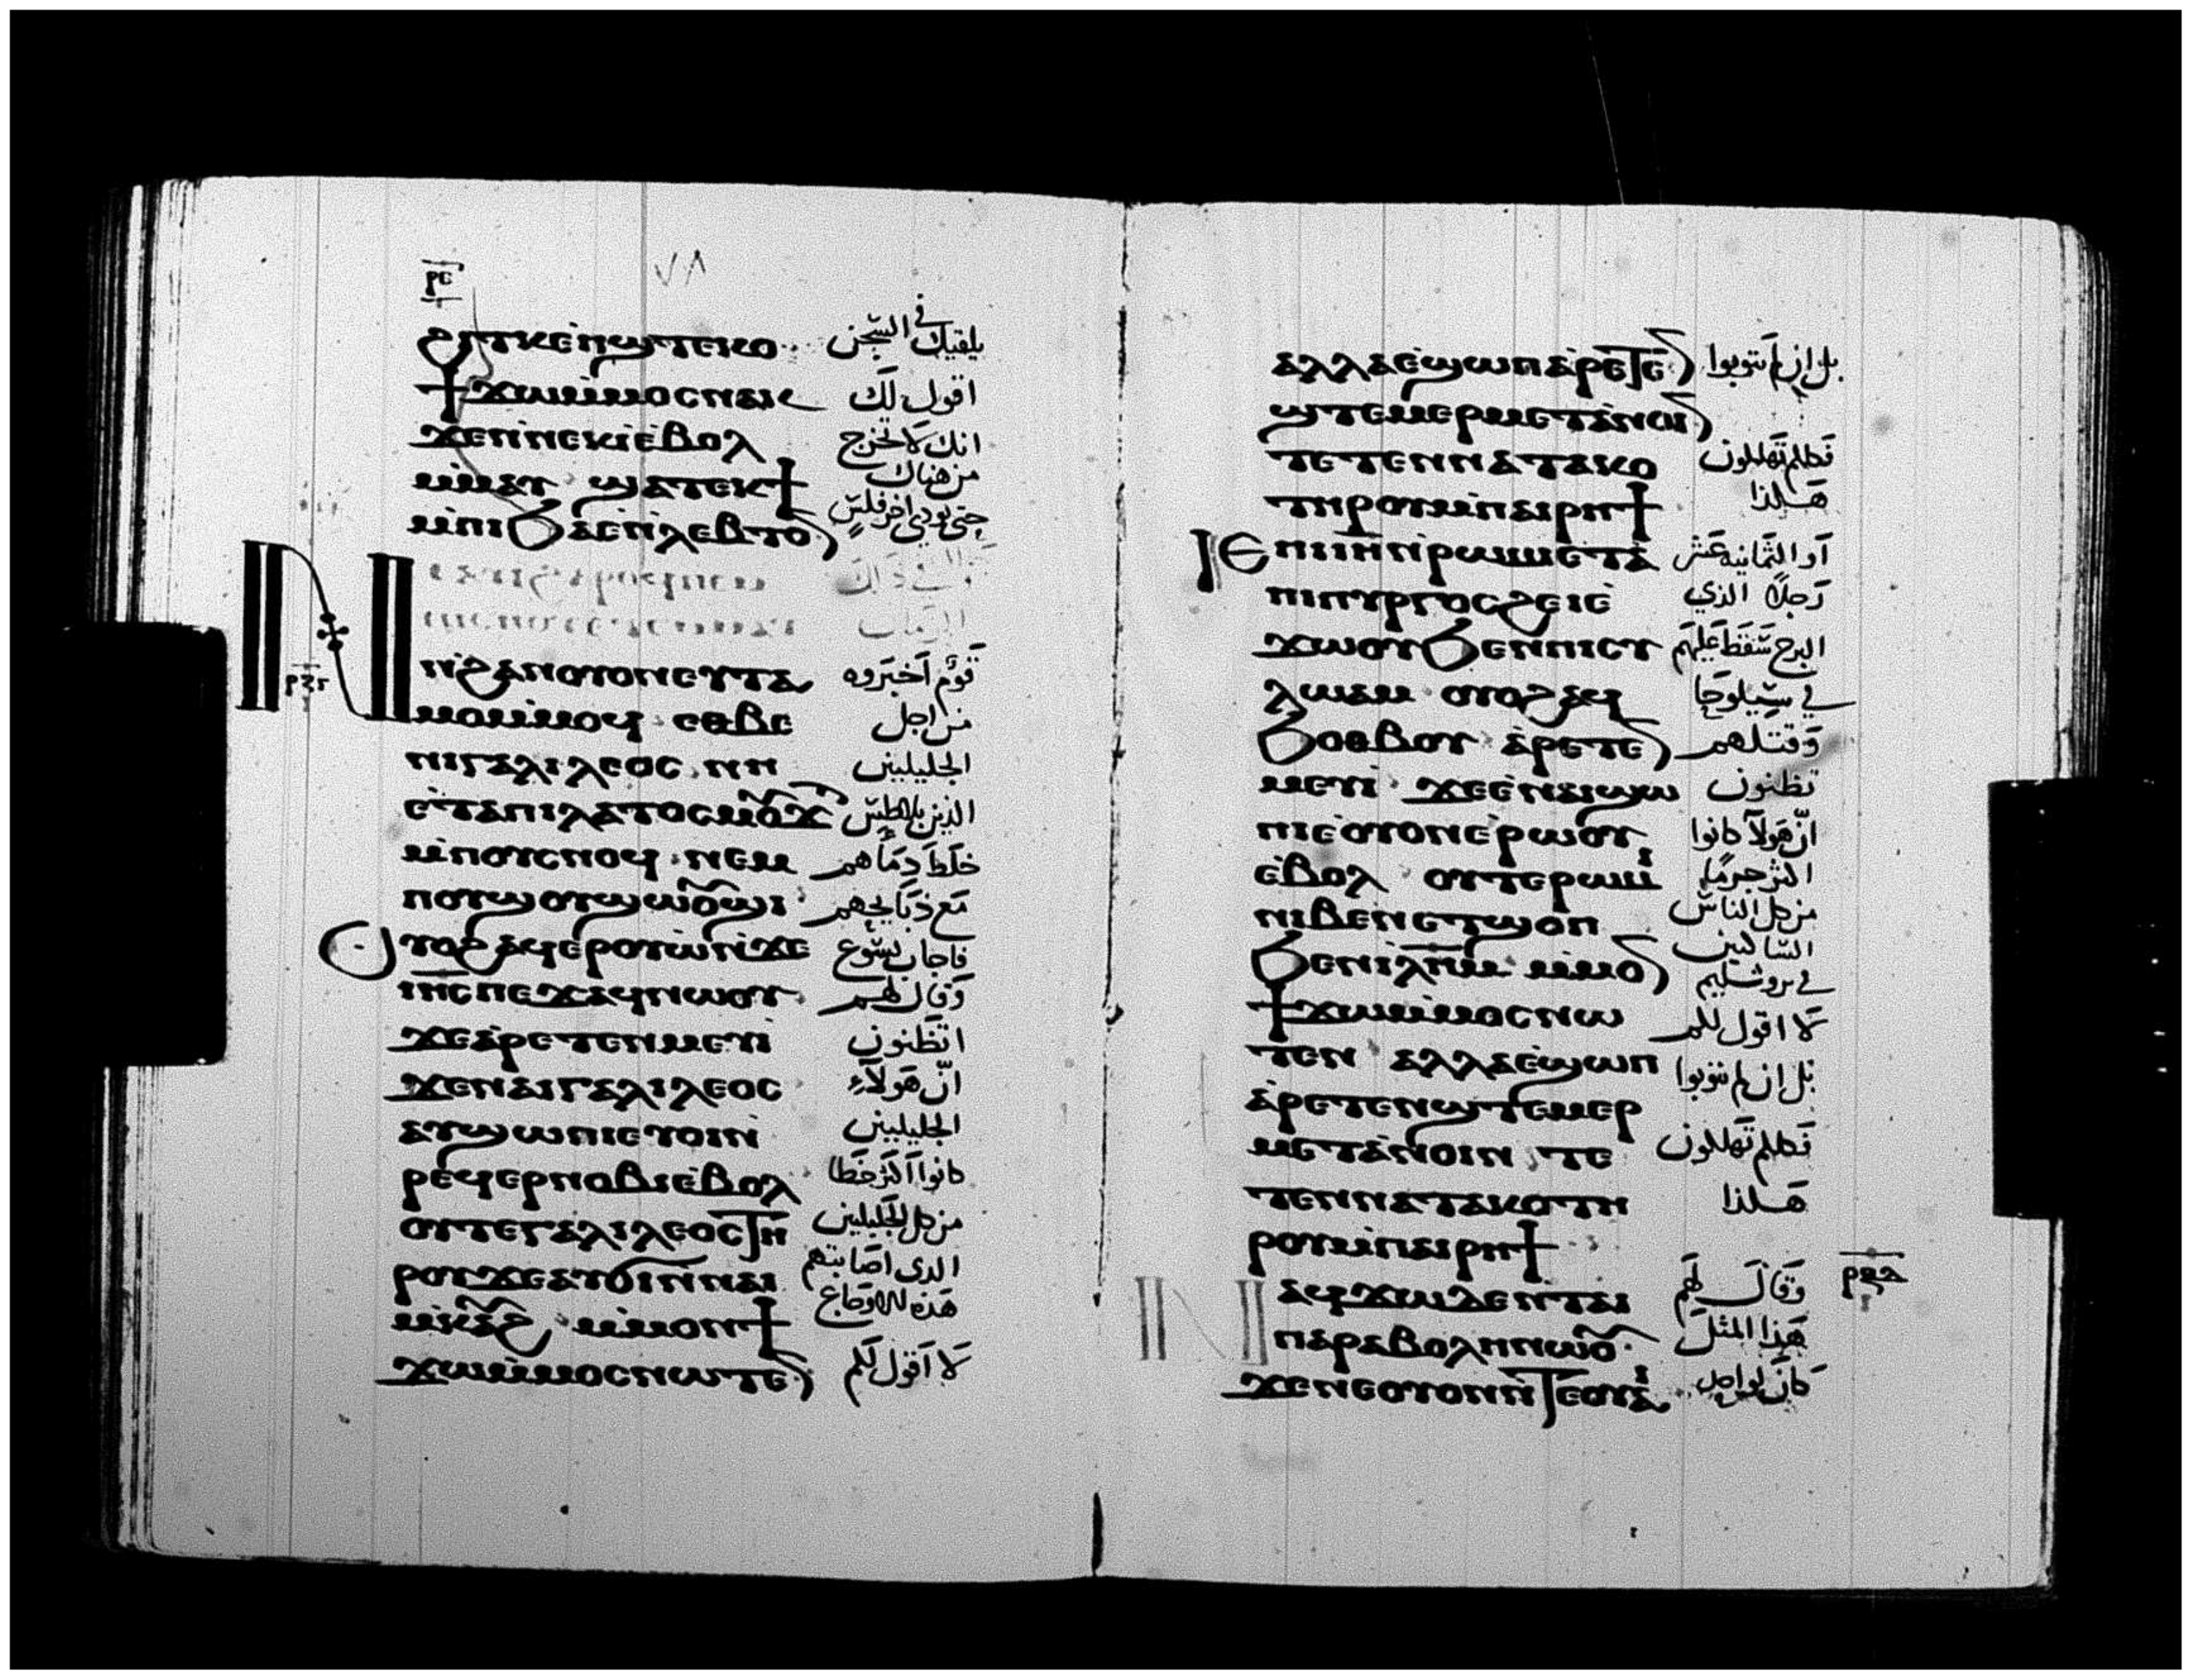 ⲣⲉ
٧٨
ϩⲓⲧⲕ ⲉⲡϣⲧⲉⲕⲟ يلقيك في السجن
ϯϫⲱ ⲙⲙⲟⲥ ⲛⲁⲕ اقول لك
ϫⲉ ⲛⲛⲉⲕⲓ ⲉⲃⲟⲗ انك لا تخرج
ⲙⲙⲁⲩ ϣⲁⲧⲉⲕϯ من هناك
ⲙⲡⲓϧⲁⲉ ⲛⲗⲉⲃⲧⲟ حتى تودي اخر فلس
ⲛϩⲁⲛⲟⲩⲟⲛ ⲉⲩⲧⲁ قوم اخبروه
ⲙⲟ ⲙⲙⲟϥ ⲉⲑⲃⲉ من اجل
ⲛⲓⲅⲁⲗⲓⲗⲉⲟⲥ ⲛⲏ الجليليين
ⲉⲧⲁ ⲡⲓⲗⲁⲧⲟⲥ ⲙⲟϫ الذين بيلاطس
ⲙⲡⲟⲩⲥⲛⲟϥ ⲛⲉⲙ خلط دماهم
ⲛⲟⲩϣⲟⲩϣⲱⲟⲩϣⲓ مع ذبايحهم
ⲟⲩⲟϩ ⲁϥⲉⲣⲟⲩⲱ ⲛϫⲉ فاجاب يسوع
ⲓⲏⲥ ⲡⲉϫⲁϥ ⲛⲱⲟⲩ وقال لهم
ϫⲉ ⲁⲣⲉⲧⲉⲛⲙⲉⲩⲓ اتظنون
ϫⲉ ⲛⲁⲓⲅⲁⲗⲓⲗⲉⲟⲥ انّ هولاء
ⲁⲩϣⲱⲡⲓ ⲉⲩⲟⲓ ⲛ الجليليين
ⲣⲉϥⲉⲣⲛⲟⲃⲓ ⲉⲃⲟⲗ كانوا اكثر خطا
ⲟⲩⲧⲉ ⲅⲁⲗⲓⲗⲉⲟⲥ ⲧⲏ من كل الجليليين
ⲣⲟⲩ ϫⲉ ⲁⲩϭⲓ ⲛⲛⲁⲓ الذي اصابتهم
ⲙⲕⲁⲩϩ ⲙⲙⲟⲛ ϯ هذه الاوجاع
ϫⲱ ⲙⲙⲟⲥ ⲛⲱⲧⲉ لا اقول لكم
ⲁⲗⲗⲁ ⲉϣⲱⲡ ⲁⲣⲉⲧⲉ بل ان لم تتوبوا
ϣⲧⲉⲙⲉⲣⲙⲉⲧⲁⲛⲟⲓ
ⲧⲉⲧⲉⲛⲛⲁⲧⲁⲕⲟ فكلكم تهلكون
ⲧⲏⲣⲟⲩ ⲙⲡⲁⲓⲣⲏϯ هكذا
ⲓⲉ ⲡⲓⲓⲏ ⲛⲣⲱⲙⲓ ⲉⲧⲁ او الثمانية عشر
ⲡⲓⲡⲩⲣⲅⲟⲥ ϩⲉⲓ ⲉ رجلا الذي
ϫⲱⲟⲩ ϧⲉⲛ ⲡⲓⲥⲩ البرج سقط عليهم
ⲗⲱⲁⲙ ⲟⲩⲟϩ ⲁϥ في سيلوحا
ϧⲟⲑⲃⲟⲩ ⲁⲣⲉⲧⲉ وقتلهم
ⲙⲉⲩⲓ ϫⲉ ⲉⲛⲁⲓϣⲱ تظنون
ⲡⲓ ⲉⲟⲩⲟⲛ ⲉⲣⲱⲟⲩ انّ هولا كانوا
ⲉⲃⲟⲗ ⲟⲩⲧⲉ ⲣⲱⲙⲓ اكثر جرما
ⲛⲓⲃⲉⲛ ⲉⲧϣⲟⲡ من كل الناس
ϧⲉⲛ ⲓⲗⲏⲙ ⲙⲙⲟ الساكنين في يروشليم
ϯϫⲱ ⲙⲙⲟⲥ ⲛⲱ لا اقول لكم
ⲧⲉⲛ ⲁⲗⲗⲁ ⲉϣⲱⲡ بل ان لم تتوبوا
ⲁⲣⲉⲧⲉⲛϣⲧⲉⲙⲉⲣ
ⲙⲉⲧⲁⲛⲟⲓⲛ ⲧⲉ فكلكم تهلكون
ⲧⲉⲛⲛⲁⲧⲁⲕⲟ ⲧⲏ هكذا
ⲣⲟⲩ ⲙⲡⲁⲓⲣⲏϯ
ⲛⲁϥϫⲱ ⲇⲉ ⲛⲧⲁⲓ وقال لهم
ⲡⲁⲣⲁⲃⲟⲗⲏ ⲛⲱⲟⲩ هذا المثل
ϫⲉ ⲛⲉ ⲟⲩⲟⲛ ⲛⲧⲉ ⲟⲩⲁⲓ كان لواحد